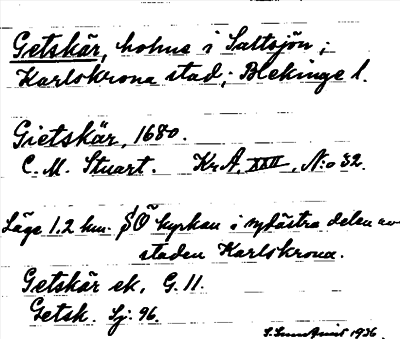 Getskär, holme i Saltsjön;
Karlskrona stad; Blekinge l.
Gietskär, 1680.
C. M. Stuart. Kr A, XXII, N:o 32.
Läge 1.2 km. SÖ kyrkan i sydöstra delen av
staden Karlskrona.
Getskär ek. G. 11.
Getsk. Sj. 96.
1936.